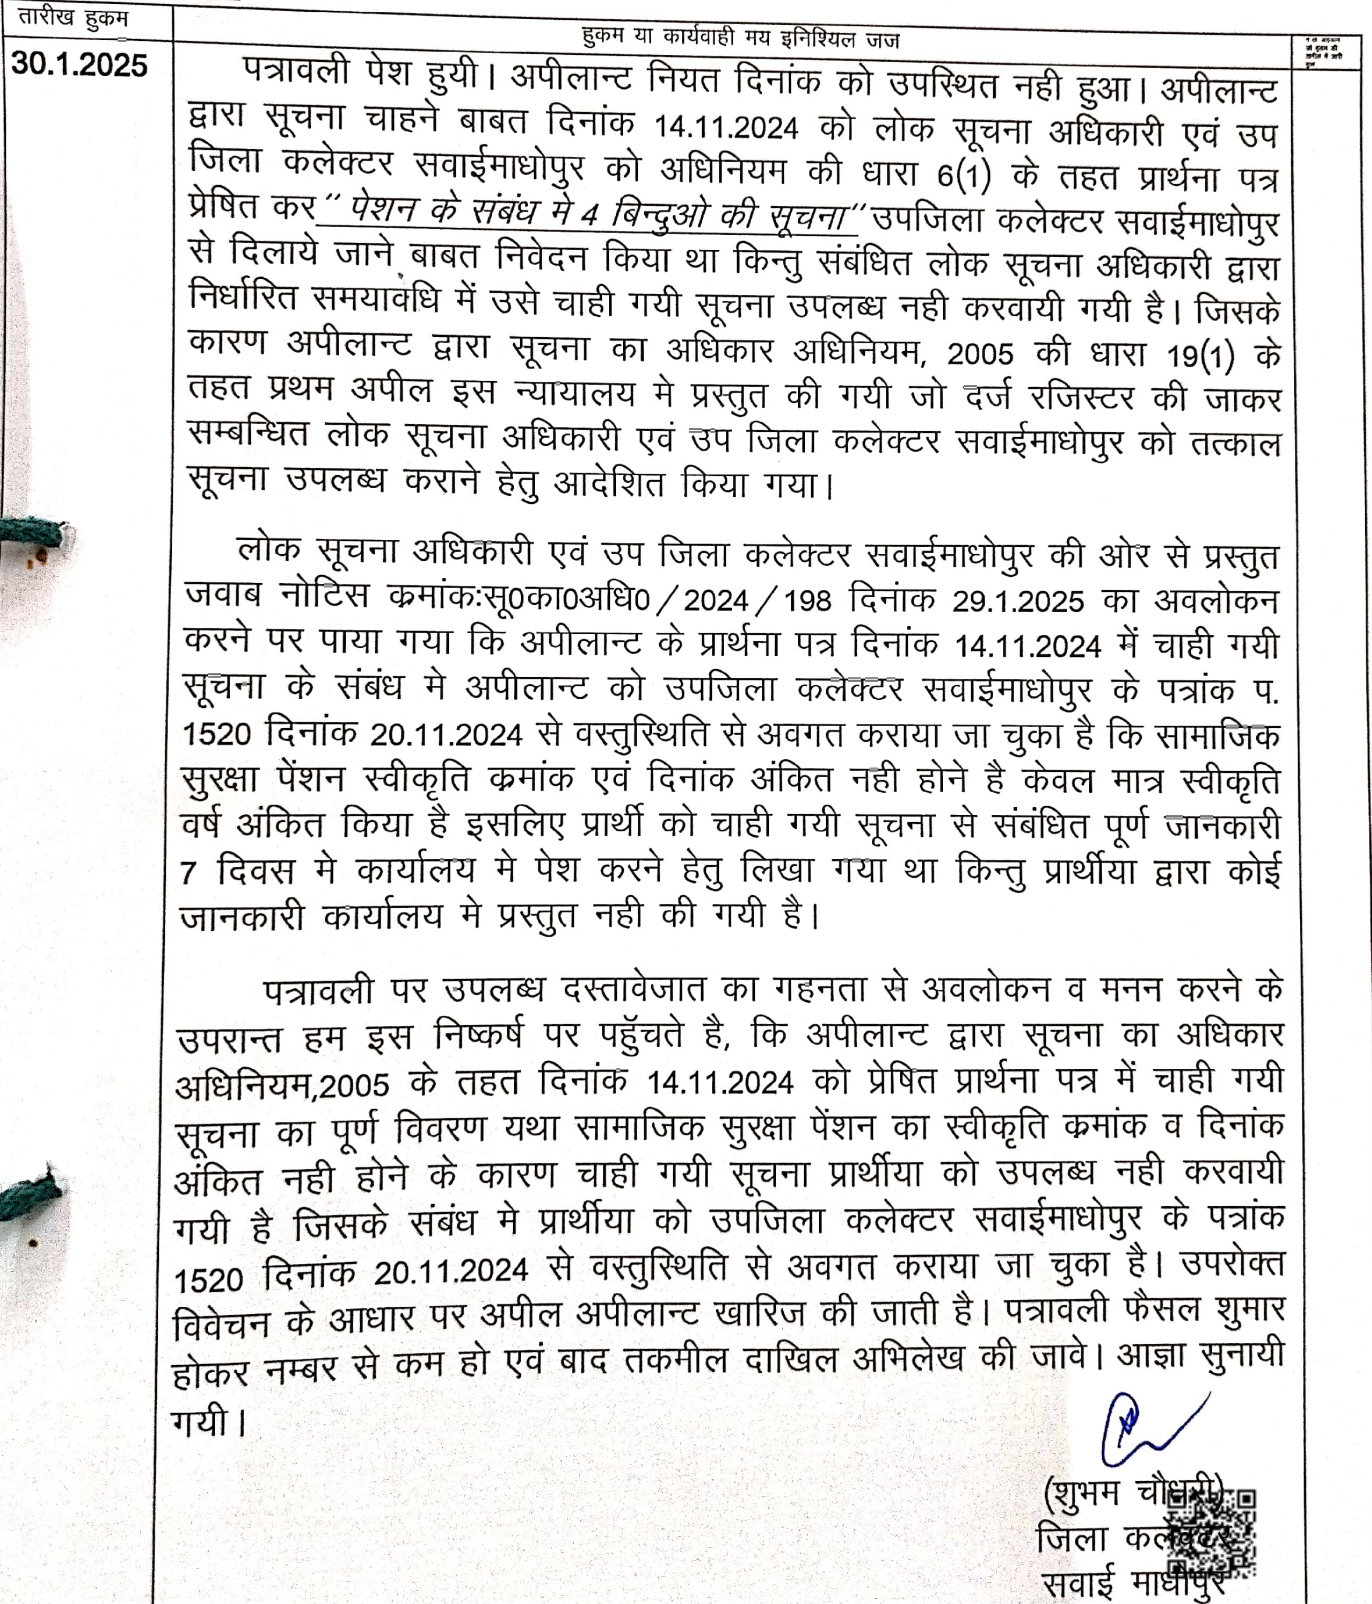 तारीख हुकम
हुकम या कार्यवाही मय इनिश्यिल जज
30.1.2025
पत्रावली पेश हुयी। अपीलान्ट नियत दिनांक को उपस्थित नही हुआ। अपीलान्ट
द्वारा सूचना चाहने बाबत दिनांक 14.11.2024 को लोक सूचना अधिकारी एवं उप
जिला कलेक्टर सवाईमाधोपुर को अधिनियम की धारा 6(1) के तहत प्रार्थना पत्र
प्रेषित कर '' पेशन के संबंध मे 4 बिन्दुओ की सूचना'' उपजिला कलेक्टर सवाईमाधोपुर
से दिलाये जाने बाबत निवेदन किया था किन्तु संबंधित लोक सूचना अधिकारी द्वारा
निर्धारित समयावधि में उसे चाही गयी सूचना उपलब्ध नही करवायी गयी है। जिसके
कारण अपीलान्ट द्वारा सूचना का अधिकार अधिनियम, 2005 की धारा 19(1) के
तहत प्रथम अपील इस न्यायालय मे प्रस्तुत की गयी जो दर्ज रजिस्टर की जाकर
सम्बन्धित लोक सूचना अधिकारी एवं उप जिला कलेक्टर सवाईमाधोपुर को तत्काल
सूचना उपलब्ध कराने हेतु आदेशित किया गया।
लोक सूचना अधिकारी एवं उप जिला कलेक्टर सवाईमाधोपुर की ओर से प्रस्तुत
जवाब नोटिस क्रमांक:सू0का0अधि0/2024/198 दिनांक 29.1.2025 का अवलोकन
करने पर पाया गया कि अपीलान्ट के प्रार्थना पत्र दिनांक 14.11.2024 में चाही गयी
सूचना के संबंध मे अपीलान्ट को उपजिला कलेक्टर सवाईमाधोपुर के पत्रांक प.
1520 दिनांक 20.11.2024 से वस्तुस्थिति से अवगत कराया जा चुका है कि सामाजिक
सुरक्षा पेंशन स्वीकृति क्रमांक एवं दिनांक अंकित नही होने है केवल मात्र स्वीकृति
वर्ष अंकित किया है इसलिए प्रार्थी को चाही गयी सूचना से संबंधित पूर्ण जानकारी
7 दिवस मे कार्यालय मे पेश करने हेतु लिखा गया था किन्तु प्रार्थीया द्वारा कोई
जानकारी कार्यालय मे प्रस्तुत नही की गयी है।
पत्रावली पर उपलब्ध दस्तावेजात का गहनता से अवलोकन व मनन करने के
उपरान्त हम इस निष्कर्ष पर पहुॅचते है, कि अपीलान्ट द्वारा सूचना का अधिकार
अधिनियम,2005 के तहत दिनांक 14.11.2024 को प्रेषित प्रार्थना पत्र में चाही गयी
सूचना का पूर्ण विवरण यथा सामाजिक सुरक्षा पेंशन का स्वीकृति क्रमांक व दिनांक
अंकित नही होने के कारण चाही गयी सूचना प्रार्थीया को उपलब्ध नही करवायी
गयी है जिसके संबंध मे प्रार्थीया को उपजिला कलेक्टर सवाईमाधोपुर के पत्रांक
1520 दिनांक 20.11.2024 से वस्तुस्थिति से अवगत कराया जा चुका है। उपरोक्त
विवेचन के आधार पर अपील अपीलान्ट खारिज की जाती है। पत्रावली फैसल शुमार
होकर नम्बर से कम हो एवं बाद तकमील दाखिल अभिलेख की जावे। आज्ञा सुनायी
गयी।
(शुभम चौधरी)
जिला कलेक्टर
सवाई माधोपुर